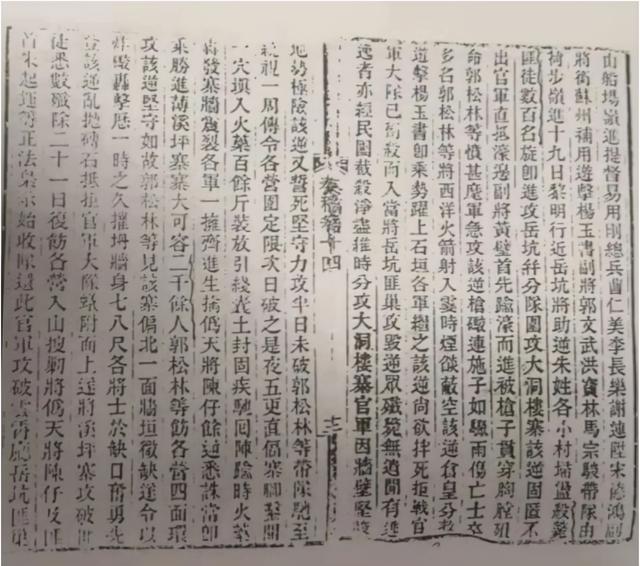 山船場嶺進提督易用剛總兵曹仁美李長樂謝連陞宋德鴻副
將銜蘇州補用遊擊楊玉書副將郭文武洪寶林馬宗駿帶隊由
荷步嶺進十九日黎明行近岳坑將助逆朱姓各小村塲盪殺斃
匪徒數百名旋卽進攻岳坑幷分隊圍攻大洞樓寨該逆固匿不
出官軍直抵濠邊副將黃璧首先踰濠而進被槍子貫穿胸膛殞
命郭松林等憤甚麾軍急攻該逆槍礮連施子如驟雨傷亡士卒
多名郭松林等將西洋火箭射入霎時煙燄蔽空該逆倉皇分救
道擊楊玉書卽乘勢躍上石垣各軍繼之該逆尚欲拌死拒戰官
軍大隊已衝殺而入當將岳坑匪巢攻毀逆眾殲斃無遺間有逃
逸者亦經民團截殺淨盡維時分攻大洞樓寨官軍因牆壁堅
奏稿 十四
地勢極險該逆又誓死堅守力攻半日未破郭松林等帶隊馳至
視一周傳令各營圍定限次日破之是夜五更直偪寨腳
一穴塡入火藥百餘斤裝放引綫囊土封固疾馳囘陣踰時火藥
發寨牆裂各軍一擁齊進生擒僞天將陳仔餘逆悉誅當卽
乘勝進薄溪坪寨寨大可容二千餘人郭松林等飭各營四面環
攻該逆堅守如故郭松林等見該寨偏北一面牆垣微缺遂令以
炸礮轟擊歷一時之久摧坍牆身七八尺各將士於缺口奮勇先
登該逆亂拋磚石抵拒官軍大隊蟻附而上遂將溪坪寨攻破匪
徒悉數殲除二十一日復飭各營入山搜剿將僞天將陳仔及匪
首朱起連等正法梟示始收隊還此官軍攻破